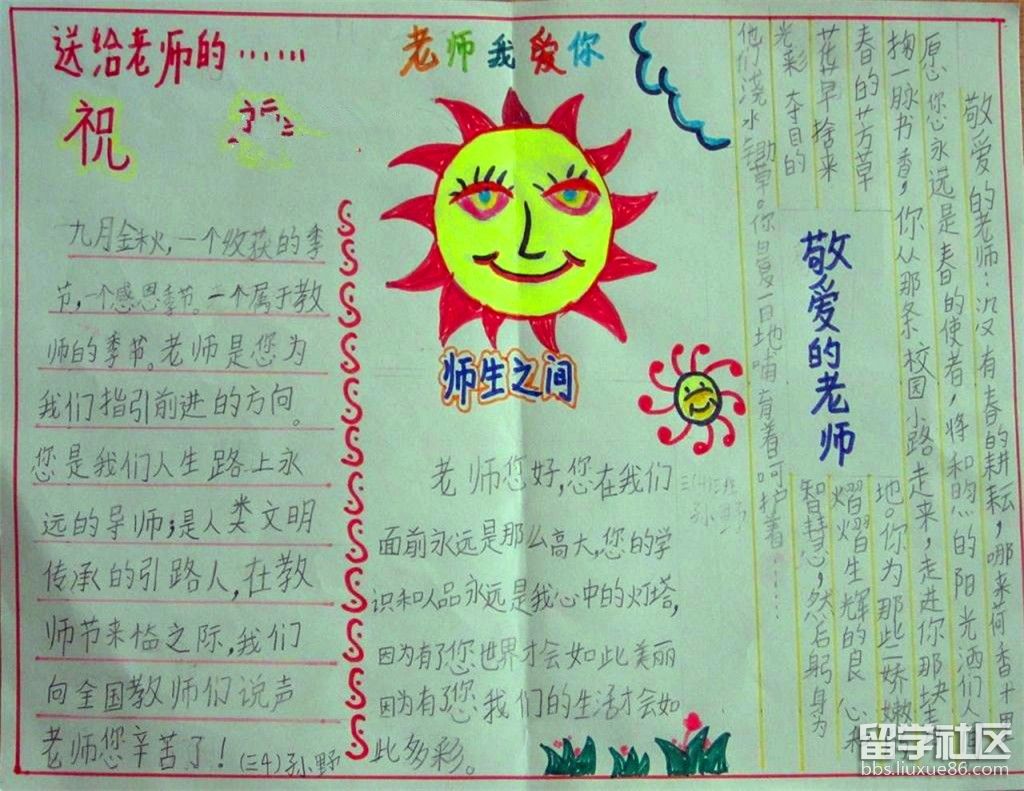 送给老师的……
祝
老师我爱你
九月金秋,一个收获的季
节,一个感恩季节。一个属于教
师的季节。老师是您为
我们指引前进的方向。
您是我们人生路上永
远的导师;是人类文明
传承的引路人,在教
师节来临之际,我们
向全国教师们说声
老师您辛苦了!(三4)孙野
师生之间
老师您好,您在我们
面前永远是那么高大,您的学
识和人品永远是我心中的灯塔,
因为有了您世界才会如此美丽
因为有了您我们的生活才会如
此多彩。
敬爱的老师
敬爱的老师:没有春的耕耘,哪来荷香十里
愿您您永远是春的使者,将和煦的阳光洒们人间
掬一脉书香,你从那条校园小路走来,走进你那块圭
春的芳草
地。你为那些娇嫩
花草捨来
熠熠生辉的良心和
光彩夺目的
智慧,然后躬身为
他们浇水锄草。你日复一日地哺育着呵护着……
三(4)班
孙野
留学社区
bbs.liuxue86.com